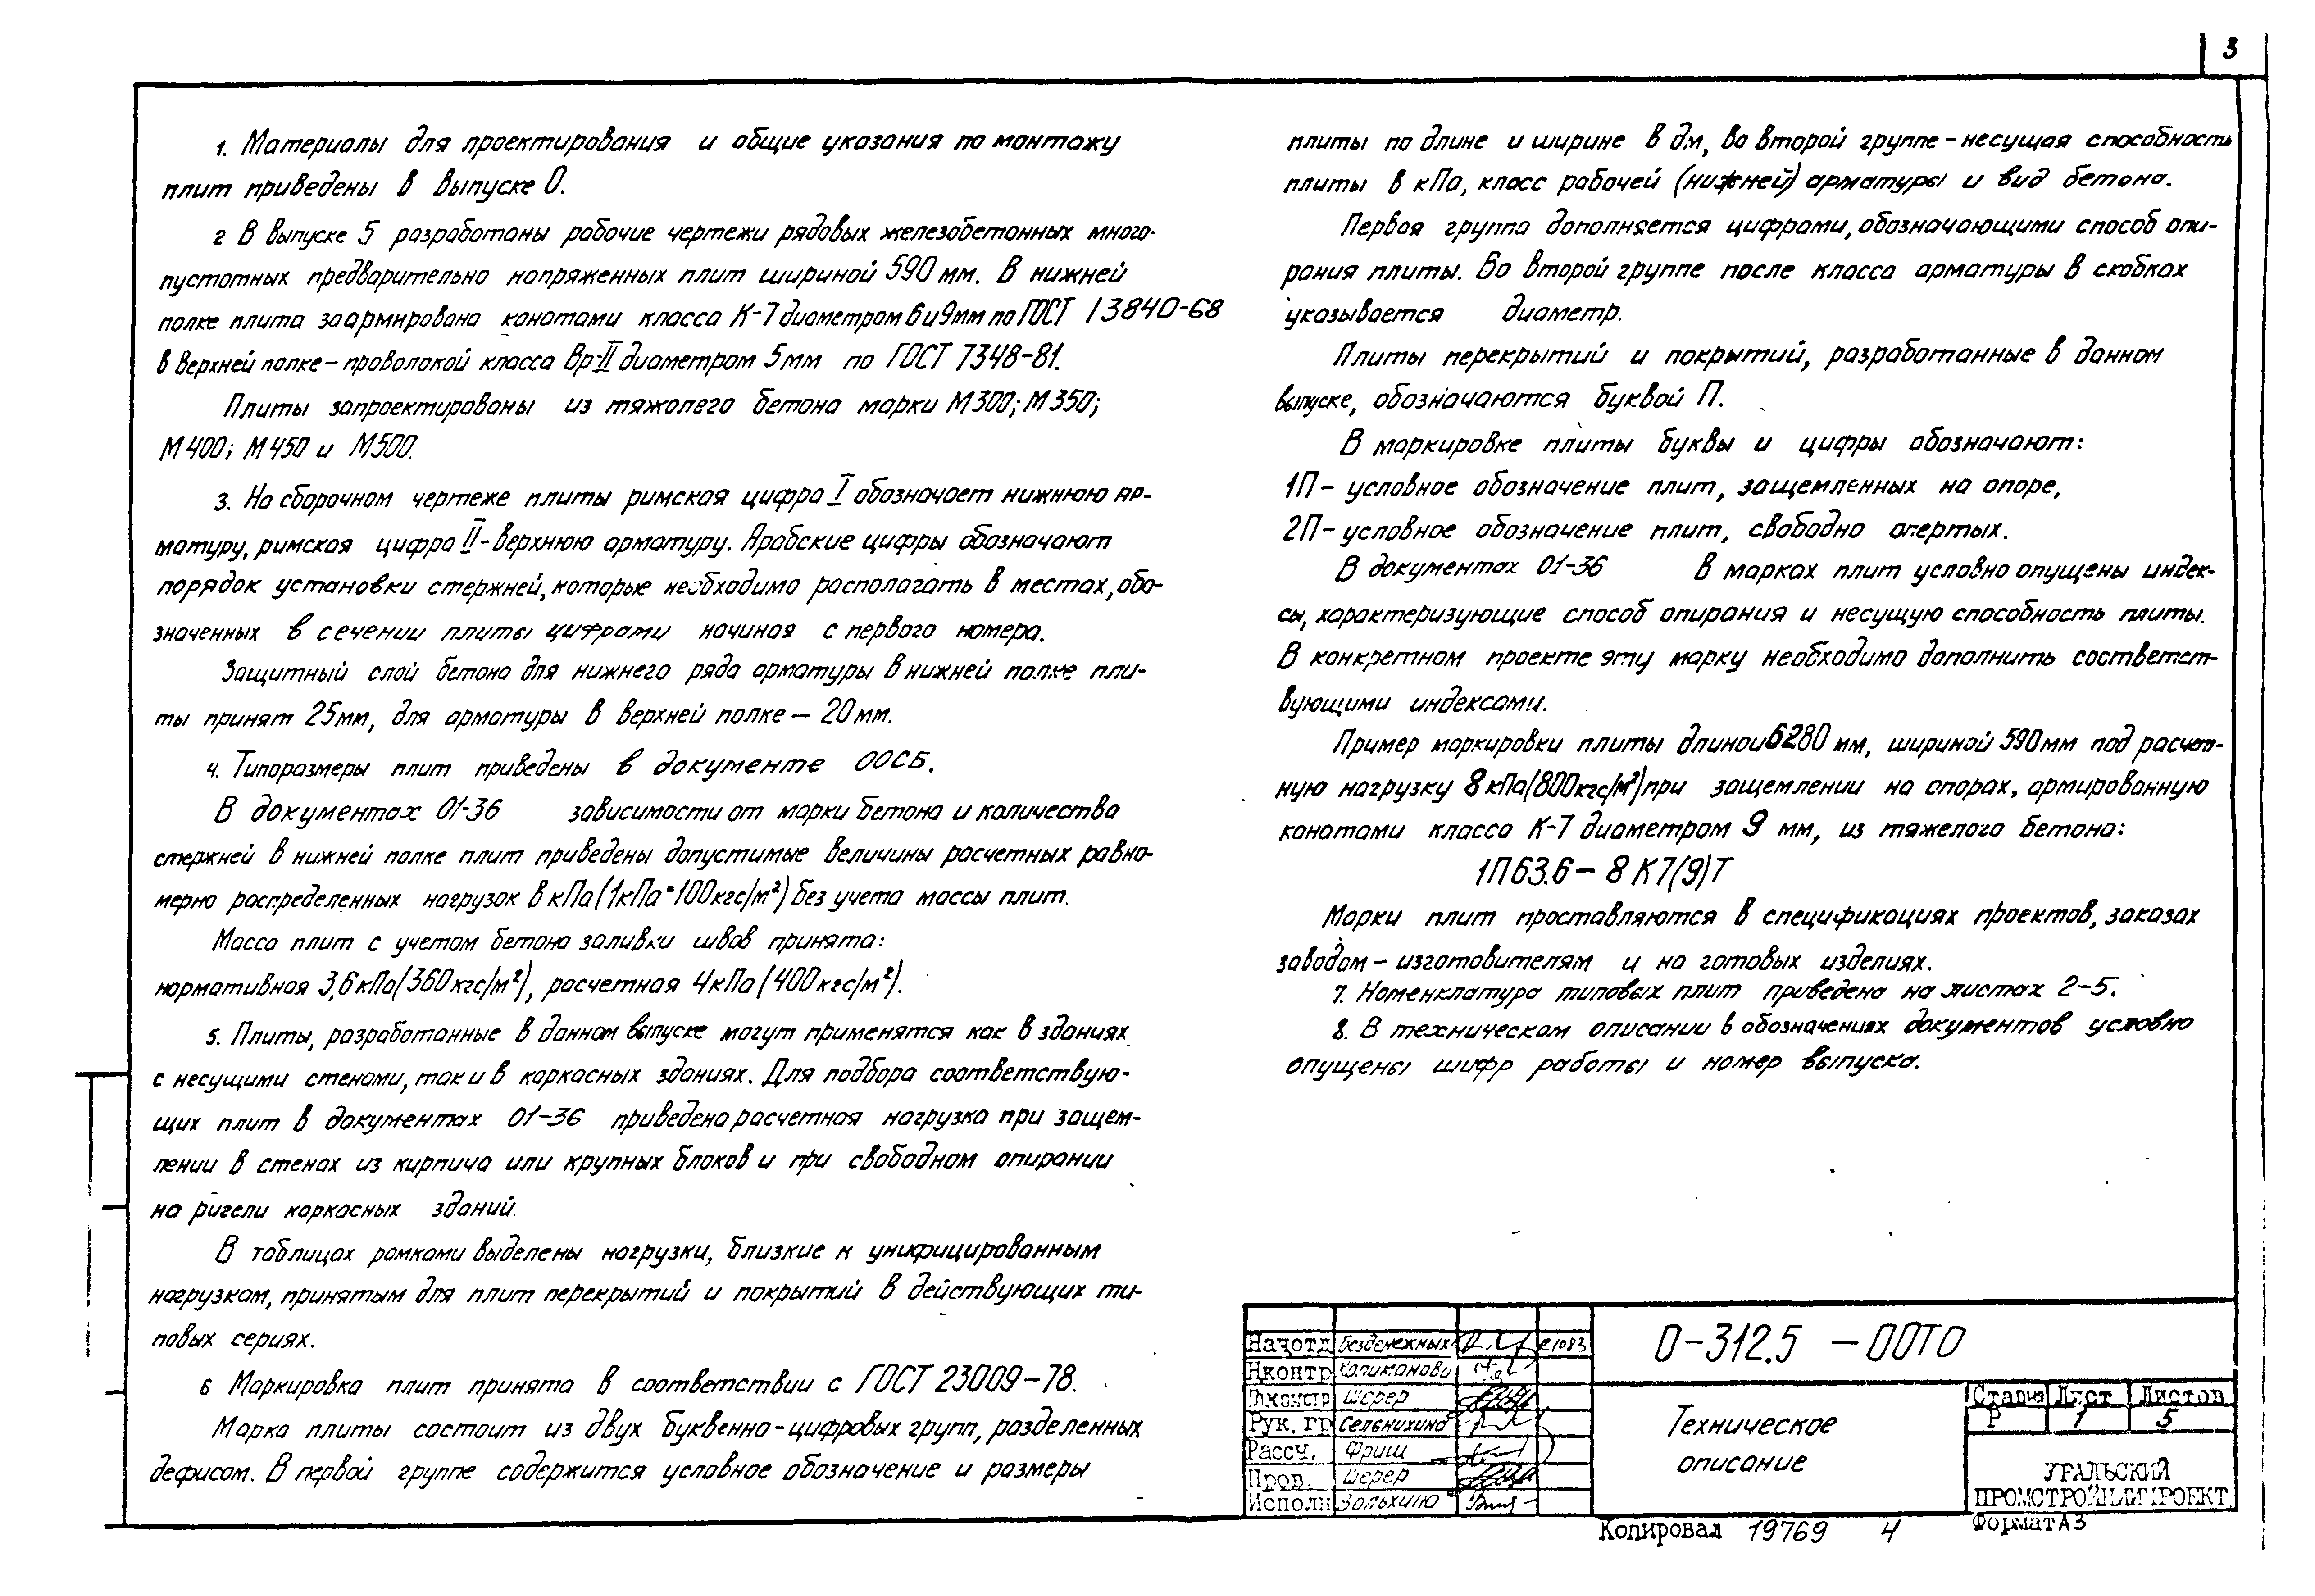 3
1. Материалы для проектирования и общие указания по монтажу
плит приведены в выпуске 0.
2 В выпуске 5 разработаны рабочие чертежи рядовых железобетонных много-
пустотных предварительно напряженных плит шириной 590 мм. В нижней
полке плита заармирована канатами класса К-7 диаметром 6 и 9 мм по ГОСТ 13840-68
в верхней полке – проволокой класса Вр-II диаметром 5 мм по ГОСТ 7348-81.
Плиты запроектированы из тяжолего бетона марки М300; М350;
М400; М450 и М500.
3. На сборочном чертеже плиты римская цифра I обозначает нижнюю ар-
матуру, римская цифра II - верхнюю арматуру. Арабские цифры обозначают
порядок установки стержней, которые необходимо распологать в местах, обо-
значенных в сечении плиты цифрами начиная с первого номера.
Защитный слой бетона для нижнего ряда арматуры в нижней полке пли-
ты принят 25мм, для арматуры в верхней полке – 20мм.
4. Типоразмеры плит приведены в документе 00СБ.
В документах 01-36 зависимости от марки бетона и количества
стержней в нижней полке плит приведены допустимые величины расчетных равно-
мерно распределенных нагрузок в кПа (1кПа=100кгс/м²) без учета массы плит.
Масса плит с учетом бетона заливки швов принята:
нормативная 3,6 кПа (360 кгс/м²), расчетная 4кПа (400кгс/м²).
5. Плиты, разработанные в данном выпуске могут применятся как в зданиях
с несущими стенами, так и в каркасных зданиях. Для подбора соответствую-
щих плит в документах 01-36 приведена расчетная нагрузка при защем-
лении в стенах из кирпича или крупных блоков и при свободном опирании
на ригели каркасных зданий.
В таблицах рамками выделены нагрузки, близкие к унифицированным
нагрузкам, принятым для плит перекрытий и покрытий в действующих ти-
повых сериях.
6 Маркировка плит принята в соответствии с ГОСТ 23009-78.
Марка плиты состоит из двух буквенно-цифровых групп, разделенных
дефисом. В первой группе содержится условное обозначение и размеры
плиты по длине и ширине в дм, во второй группе – несущая способность
плиты в кПа, класс рабочей (нижней) арматуры и вид бетона.
Первая группа дополняется цифрами, обозначающими способ опи-
рания плиты. Во второй группе после класса арматуры в скобках
указывается диаметр.
Плиты перекрытий и покрытий, разработанные в данном
выпуске, обозначаются буквой П.
В маркировке плиты буквы и цифры обозначают:
1П – условное обозначение плит, защемленных на опоре,
2П – условное обозначение плит, свободно опертых.
В документах 01-36 В марках плит условно опущены индек-
сы, характеризующие способ опирания и несущую способность плиты.
В конкретном проекте эту марку необходимо дополнить соответст-
вующими индексами.
Пример маркировки плиты длиной 6280 мм, шириной 590 мм под расчет-
ную нагрузку 8 кПа (800кгс/м²) при защемлении на опорах, армированную
канатами класса К-7 диаметром 9 мм, из тяжелого бетона:
1П63.6 – 8 К7(9)Т
Марки плит проставляются в спецификациях проектов, заказах
заводам – изготовителям и на готовых изделиях.
7. Номенклатура типовых плит приведена на листах 2-5.
8. В техническом описании в обозначениях документов условно
опущены шифр работы и номер выпуска.
Нач.отд Безденежных 1083
Н.контр
Гл.констр Шерер
Рук. гр Сельнихина
Рассч. Фриш
Пров. Шерер
Исполн Золькина
0-312.5 – 00ТО
Техническое
описание
Стадия Лист Листов
Р 1 5
УРАЛЬСКИЙ
ПРОМСТРОЙНИИПРОЕКТ
Копировал 19769 4 Формат А3